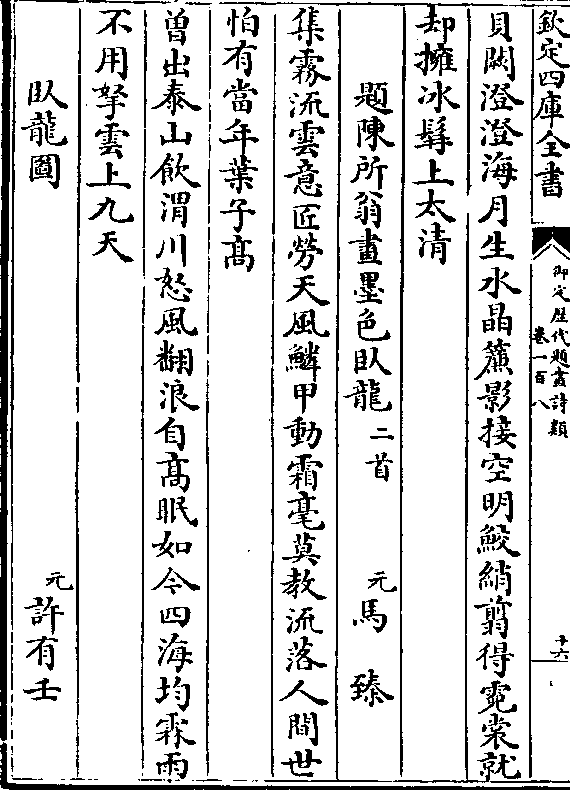 欽定四庫全書
御定歴代題畫詩類
卷一百八
十六
貝闕澄澄海月生水晶簾影接空明鮫綃翦得霓裳就
却擁冰髯上太清
題陳所翁畫墨色臥龍二首 元馬臻
集霧流雲意匠勞天風鱗甲動霜毫莫教流落人間世
怕有當年葉子髙
曽出泰山飲渭川怒風翻浪自髙眠如今四海均霖雨
不用拏雲上九天
臥龍圖 元許有壬